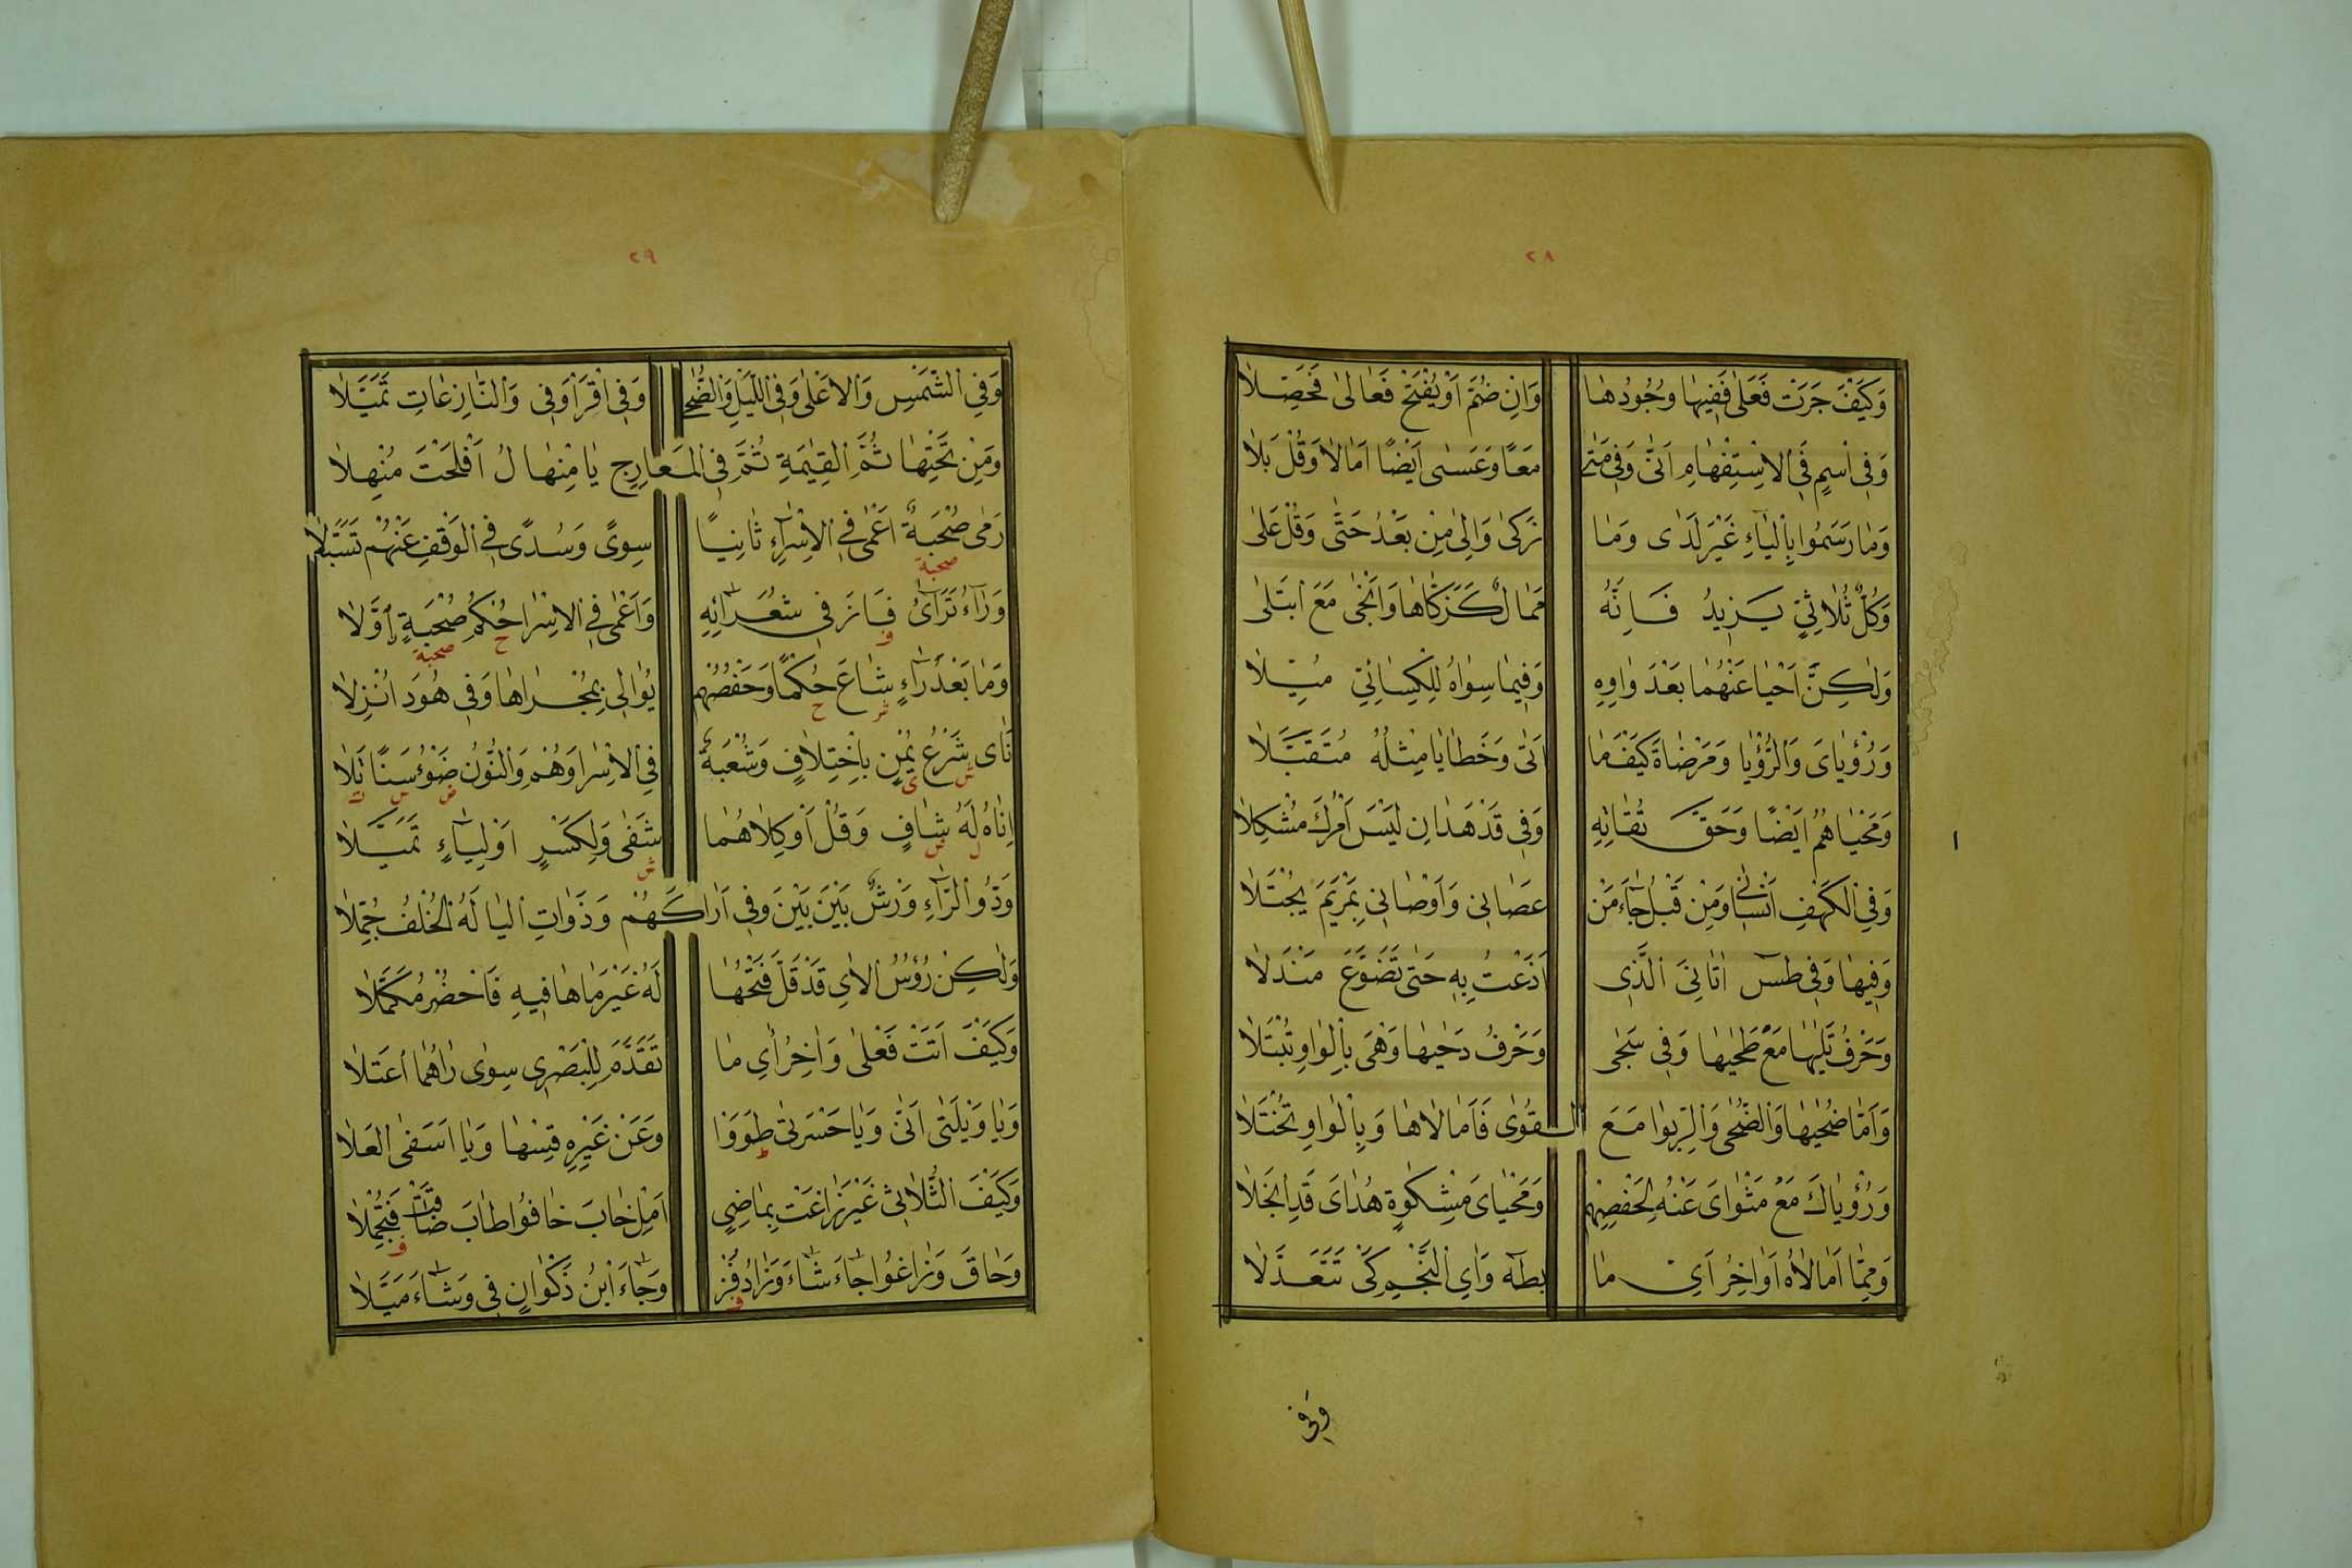 ٢٨
وَكَيْفَ جَرَتْ فَعَلٰى فَفِيهٰا وُجُودُهٰا وَاِنْ ضُمَّ اَوْ يُفْتَحْ فَعٰالٰى فَحَصِّلاٰ
وَفِى اسْمٍ فِى الاِسْتِفْهٰامِ اَنّٰى وَفِى مَتٰى مَعًا وَعَسٰى اَيْضًا اَمٰالاٰ وَقُلْ بَلاٰ
وَمٰا رَسَمُوا بِالْيٰاءِ غَيْرَ لَدٰى وَمٰا زَكٰى وَاِلٰى مِنْ بَعْدُ حَتّٰى وَقُلْ عَلٰى
وَكُلُّ ثُلاٰثِىٍّ يَزِيدُ فَاِنَّهُ مَمٰالٌ كَزَكّٰاهٰا وَاَنْجٰى مَعَ ابْتَلٰى
وَلٰكِنَّ اَحْيٰا عَنْهُمٰا بَعْدَ وٰاوِهِ وَفِيمٰا سِوٰاهُ لِلْكِسٰائِىِّ مُيِّلاٰ
وَرُؤْيٰاىَ وَالرُّؤْيٰا وَمَرْضٰاةَ كَيْفَمٰا اَتٰى وَخَطٰايٰا مِثْلُهُ مُتَقَبَّلاٰ
وَمَحْيٰاهُمُ اَيْضًا وَحَقَّ تُقٰاتِهِ وَفِى قَدْ هَدٰانِ لَيْسَ اَمْرُكَ مُشْكِلاٰ
١
وَفِى الْكَهْفِ اَنْسٰانِى وَمِنْ قَبْلُ جٰاءَ مَنْ عَصٰانِى وَاَوْصٰانِى بِمَرْيَمَ يُجْتَلاٰ
وَفِيهٰا وَفِى طٰسۤ اٰتٰانِىَ الَّذِى اَذَعْتُ بِهِ حَتّٰى تَضَوَّعَ مَنْدَلاٰ
وَحَرْفُ تَلٰيهٰا مَعْ طَحٰيهٰا وَفِى سَجٰى وَحَرْفُ دَحٰيهٰا وَهْىَ بِالْوٰاوِ تُبْتَلاٰ
وَاَمّٰا ضُحٰيهٰا وَالضُّحٰى وَالرِّبٰوا مَعَ الْقُوٰى فَاَمٰالاٰهٰا وَبِالْوٰاوِ تُخْتَلاٰ
وَرُؤْيٰاكَ مَعْ مَثْوٰاىَ عَنْهُ لِحَفْصِهِمْ وَمَحْيٰاىَ مِشْكٰوةٍ هُدٰاىَ قَدِ انْجَلاٰ
وَمِمّٰا اَمٰالاٰهُ اَوٰاخِرُ اٰىِ مٰا بِطٰهٰ وَاٰىِ النَّجْمِ كَىْ تَتَعَدَّلاٰ
وَفِى
٢٩
وَفِى الشَّمْسِ وَالاَعْلٰى وَفِى اللَّيْلِ وَالضُّحٰى وَفِى اقْرَأْ وَفِى وَالنّٰازِعٰاتِ تَمَيَّلاٰ
وَمِنْ تَحْتِهٰا ثُمَّ الْقِيٰمَةِ ثُمَّ فِى الْمَعٰارِجِ يٰا مِنْهٰالُ اَفْلَحْتَ مُنْهِلاٰ
رَمٰى صُحْبَةٌ اَعْمٰى فِى الاِسْرٰاءِ ثٰانِيًا سِوًى وَسُدًى فِى الْوَقْفِ عَنْهُمْ تَسَبَّلاٰ
صحبة
وَرٰاءُ تَرٰاءٰى فٰازَ فِى شُعَرٰائِهِ وَاَعْمٰى فِى الاِسْرٰا حُكْمُ صُحْبَةٍ اَوَّلاٰ
ف ح صحبة
وَمٰا بَعْدَ رٰاءٍ شٰاعَ حُكْمًا وَحَفْصُهُمْ يُوٰالِى بِمُجْرٰاهٰا وَفِى هُودَ اُنْزِلاٰ
ش ح
نَاٰى شَرْعُ يُمْنٍ بِاخْتِلاٰفٍ وَشُعْبَةٌ فِى الاِسْرٰا وَهُمْ وَالنُّونُ ضَوْءُ سَنًا تَلاٰ
ش ى ض س ت
اِنٰاهُ لَهُ شٰافٍ وَقُلْ اَوْ كِلاٰهُمٰا شَفٰى وَلِكَسْرٍ اَوْ لِيٰاءٍ تَمَيَّلاٰ
ل ش ش
وَذُو الرّٰاءِ وَرْشٌ بَيْنَ بَيْنَ وَفِى اَرٰاكَهُمْ وَذَوٰاتِ الْيٰا لَهُ الْخُلْفُ جُمِّلاٰ
وَلٰكِنْ رُؤُسُ الاٰىِ قَدْ قَلَّ فَتْحُهٰا لَهُ غَيْرَ مٰا هٰا فِيهِ فَاحْضُرْ مُكَمَّلاٰ
وَكَيْفَ اَتَتْ فَعْلٰى وَاٰخِرُ اٰىِ مٰا تَقَدَّمَ لِلْبَصْرِى سِوٰى رٰاهُمٰا اعْتَلاٰ
وَيٰا وَيْلَتٰى اَنّٰى وَيٰا حَسْرَتٰى طَوَوْا وَعَنْ غَيْرِهِ قِسْهٰا وَيٰا اَسَفٰى الْعُلاٰ
ط
وَكَيْفَ الثُّلاٰثِى غَيْرَ زٰاغَتْ بِمٰاضِىٍ اَمِلْ خٰابَ خٰافُوا طٰابَ ضٰاقَتْ فَتُجْمِلاٰ
ف
وَحٰاقَ وَزٰاغُوا جٰاءَ شٰاءَ وَزٰادَ فُزْ وَجٰاءَ ابْنُ ذَكْوٰانٍ فِى وَشٰاءَ مَيَّلاٰ
ف